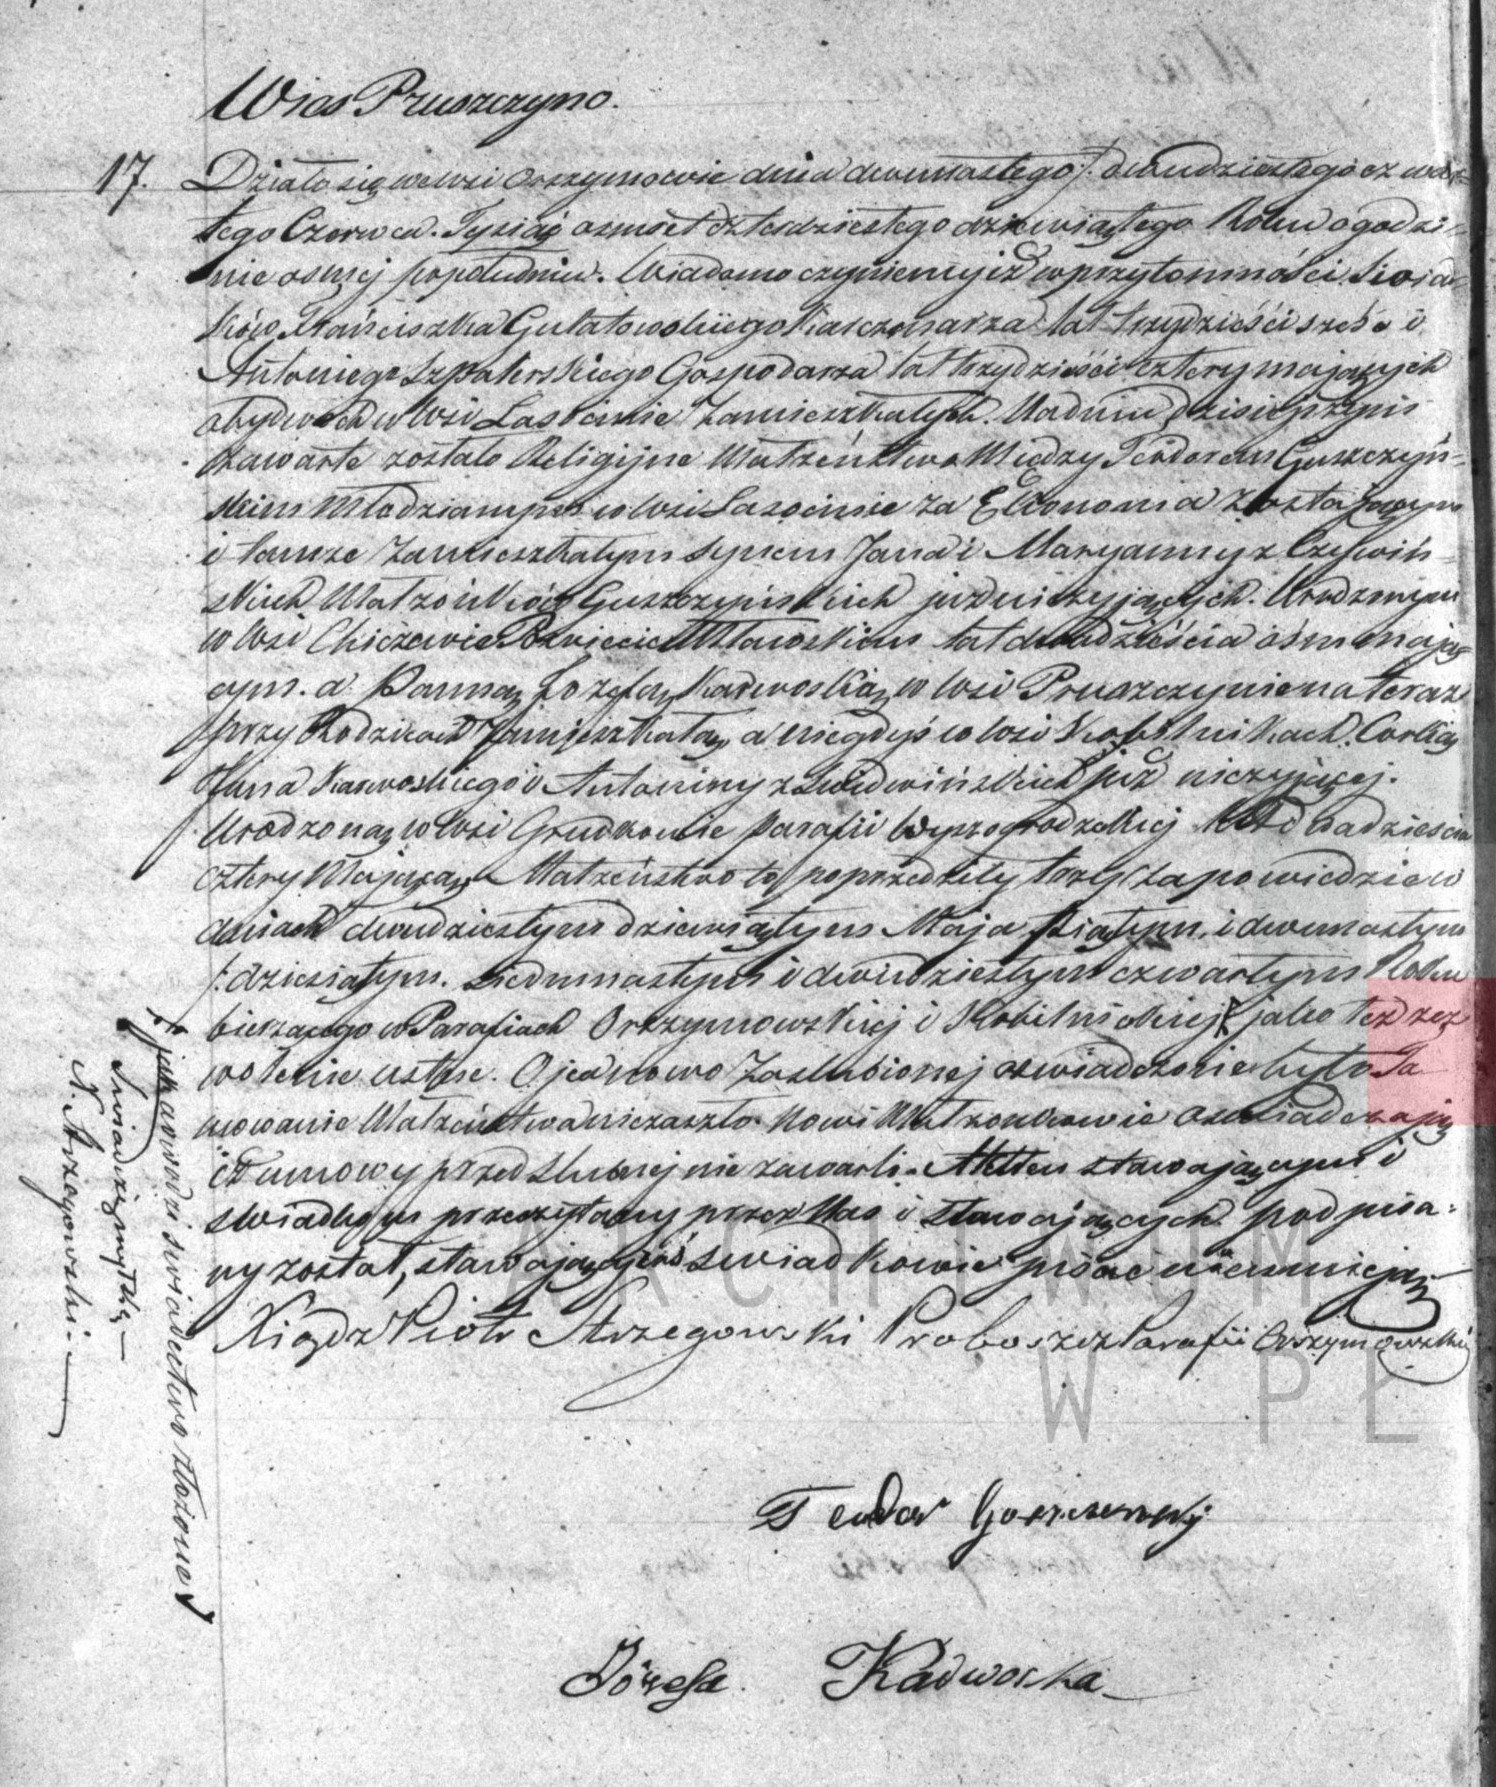 Wies Pruszczyno.
17. Działo się we wsi Orszymowie dnia dwunastego /: dwudziestego czwar-
tego Czerwca. Tysiąc ośmset czterdziestego dziewiątego Roku o godzi-
nie ósmej popołudniu. Wiadomo czyniemy iż w przytomności Swia-
ków Franciszka Gutatowskiego Karczmarza lat trzydzieści sześć i
Antoniego Szpaterskiego Gospodarza lat trzydzieści cztery mających
obydwoch w Wsi Lasocinie Zamieszkałych. Na dniu dzisiejszym
zawarte zostało Religijne Małżeństwo Między Teodorem Guszczyń-
skim Młodzianym w wsi Lasocinie za Ekonoma zostającym
i tamże Zamieszkałym synem Jana i Maryanny z
skich Małżonków Guszczyńskich już nieżyjących. Urodzonym
w Wsi Powiecie Mławskim lat dwadzieścia ośm mają-
cym. a Panną Jozefą Kadwoską w wsi Pruszczynie na teraz
przy Rodzicach Zamieszkałą, a niegdyś w wsi Kobilnikach. Corką
Jana Kawoskiego i Antoniny z Ludwińskich już nieżyjącej.
Urodzoną w Wsi Grudkowie parafii Wyszogrodzkiej lat dwadzieścia
cztery Mającą. Małżeństwo to poprzedziły trzy zapowiedzie w
dniach dwudziestym dziewiątym Maja piątym, i dwunastym
/: dziesiątym. siedmnastym i dwudziestym czwartym Roku
bieżącego w Parafiach Orszymowskiej i Kobilnickiej jako też zez-
wolenie ustne. Ojca nowo Zaslubionej oswiadczonie było Ta-
mowanie Małżeństwa niezaszło. Nowi Małżonkowie oswiadczają
iż umowy przed slubnej nie zawarli. Akt ten stawającym i
swiadkom przeczytany przez Nas i stawających podpisa-
ny został, stawający zaś swiadkowie pisać nieumieją
Xiądz Piotr Strzegowski Proboszcz Parafii Orszymowskiej
jak dowodzi swiadectwo złożone
Swiadczę omyłkę
X. Strzegowski.
Teodor
Józefa Kadwoska
ARCHIWUM
W PŁ